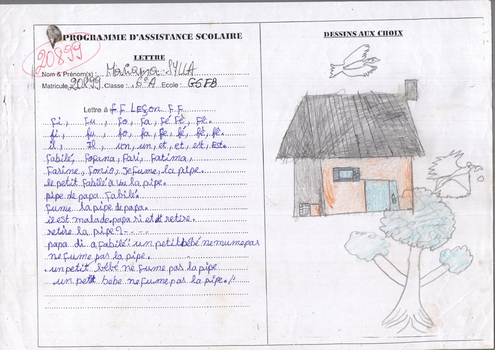 20899
PROGRAMME D'ASSISTANCE SCOLAIRE
LETTRE
Nom & Prénom(s) : Mariama SYLLA
Matricule 20899 Classe : 6°A Ecole : GSFB
Lettre à F F LEÇON F F
fi, fu, fo, fa, fé fè, fê.
fi, fu, fo, fa, fe, fé, fè, fê.
il, Il, un, un, et, et, est, Est.
fabilé, fofana, fari, fatima,
farine, fonio, je fume, la pipe.
le petit fabilé a vu la pipe.
pipe de papa fabilé.
fume la pipe de papa.
il est malade. papa ri et retire.
retire la pipe ?
papa di a fabilé un petit bébé ne mume pas
ne fume pas la pipe.
un petit bébé ne fume pas la pipe
un petit bebe ne fume pas la pipe.
DESSINS AUX CHOIX